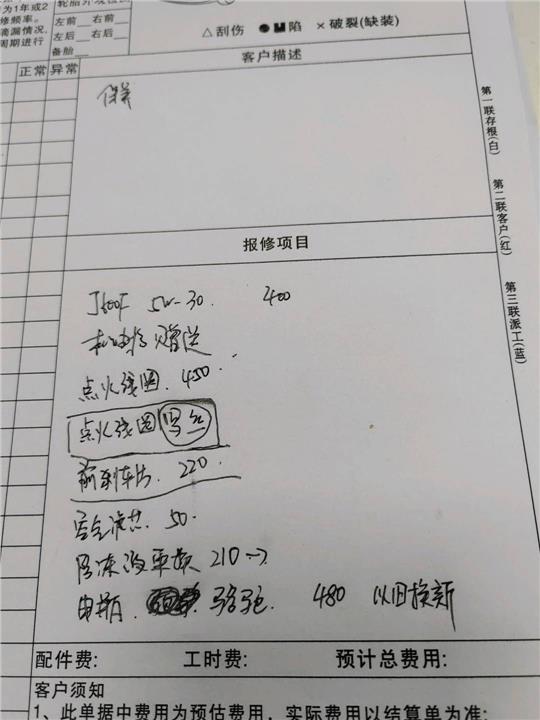 为1年或2
修频率。
滴漏情况,
周期进行
左前 右前
左后 右后
备胎
△刮伤 ●凹陷 ×破裂(缺装)
正常 异常
客户描述
保养
第一联存根(白)
第二联客户(红)
第三联派工(蓝)
报修项目
5W-30. 400
赠送
点火线圈. 450
点火线圈
前刹车片. 220
空气滤芯. 50.
防冻液更换 210
电瓶 骆驼. 480 以旧换新
配件费: 工时费: 预计总费用:
客户须知
1、此单据中费用为预估费用，实际费用以结算单为准;